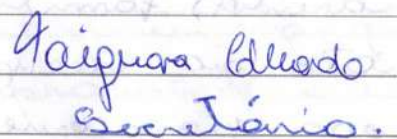 Taiguara Eduardo
Secretário.